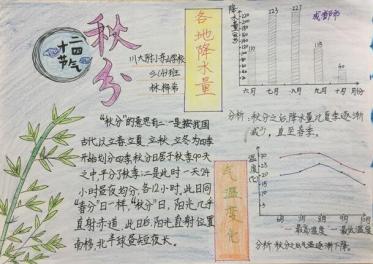 二十四节气
秋分
川大附小清水河分校
林梯希
各地降水量
降水量
成都市
223
223
六月 七月 八月 九月 十月 月份
分析：秋分之后降水量比夏季逐渐
减少，直至春季。
"秋分"的意思有二：一是按我国
古代以立春、立夏、立秋、立冬为四季
开始划分四季，秋分日居于秋季90天
之中，平分了秋季；二是此时一天24
小时昼夜均分，各12小时，此日同
"春分"日一样，"秋分"日，阳光几乎
直射赤道，此日后，阳光直射位置
南移，北半球昼短夜长。
气温变化
温度
最高温度
最低温度
分析：秋分之后气温逐渐下降。